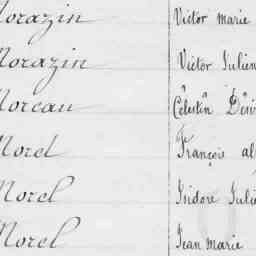 Morazin Victor Marie
Morazin Victor Julien
Moreau Célestin Dési
Morel François al
Morel Isidore Julie
Morel Jean Marie